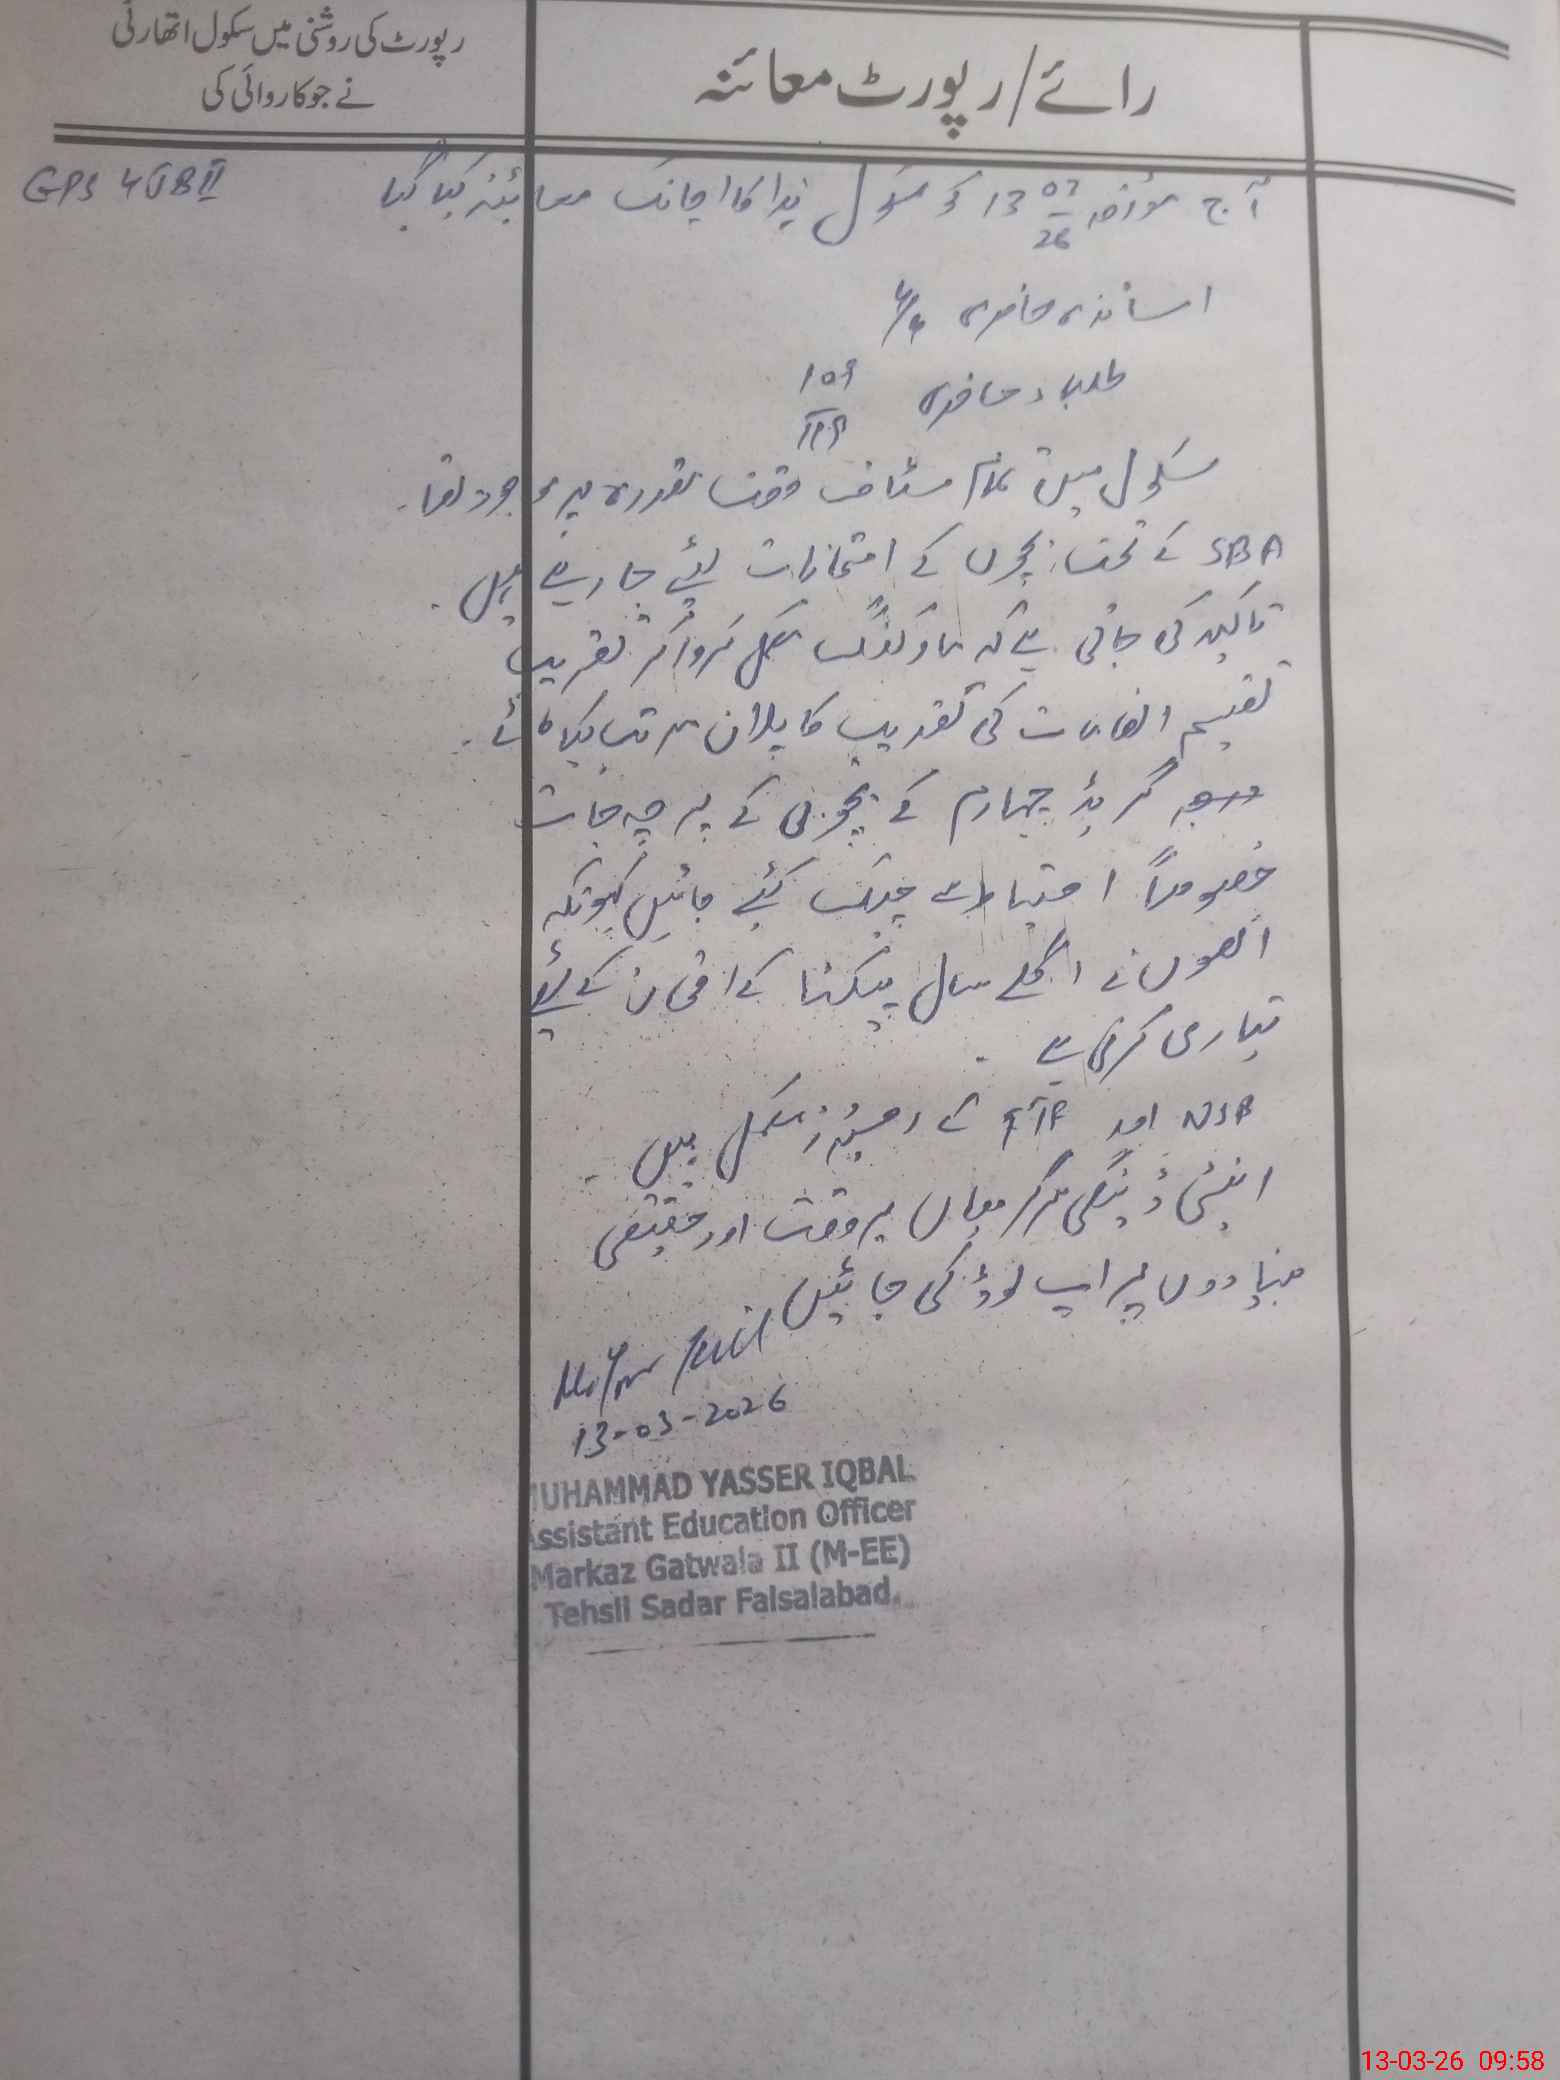 رپورٹ کی روشنی میں سکول اتھارٹی
نے جو کاروائی کی
رائے/رپورٹ معائنہ
GPS 4 JB II
آج مؤرخہ 13 03/26 کو سکول ہذا کا اچانک معائینہ کیا گیا
اساتذہ حاضری 4/4
طلباء حاضری 109/119
سکول میں تمام سٹاف وقت مقررہ پر موجود تھا۔
SBA کے تحت بچوں کے امتحانات لیئے جا رہے ہیں۔
تاکید کی جاتی ہے کہ مارکنگ مکمل کروا کر تقریب
تقسیم انعامات کی تقریب کا پلان مرتب کیا جائے۔
گریڈ چہارم کے بچوں کے پرچہ جات
خصوصاً احتیاط سے چیک کئیے جائیں کیونکہ
انھوں نے اگلے سال پیکٹا کے امتحان کے لیئے
تیاری کرنی ہے۔
NSB اور FTF کے رجسٹرز مکمل ہیں۔
اینٹی ڈینگی سرگرمیاں بروقت اور حقیقی
بنیادوں پر اپ لوڈ کی جائیں
13-03-2026
MUHAMMAD YASSER IQBAL
Assistant Education Officer
Markaz Gatwala II (M-EE)
Tehsil Sadar Faisalabad.
13-03-26 09:58